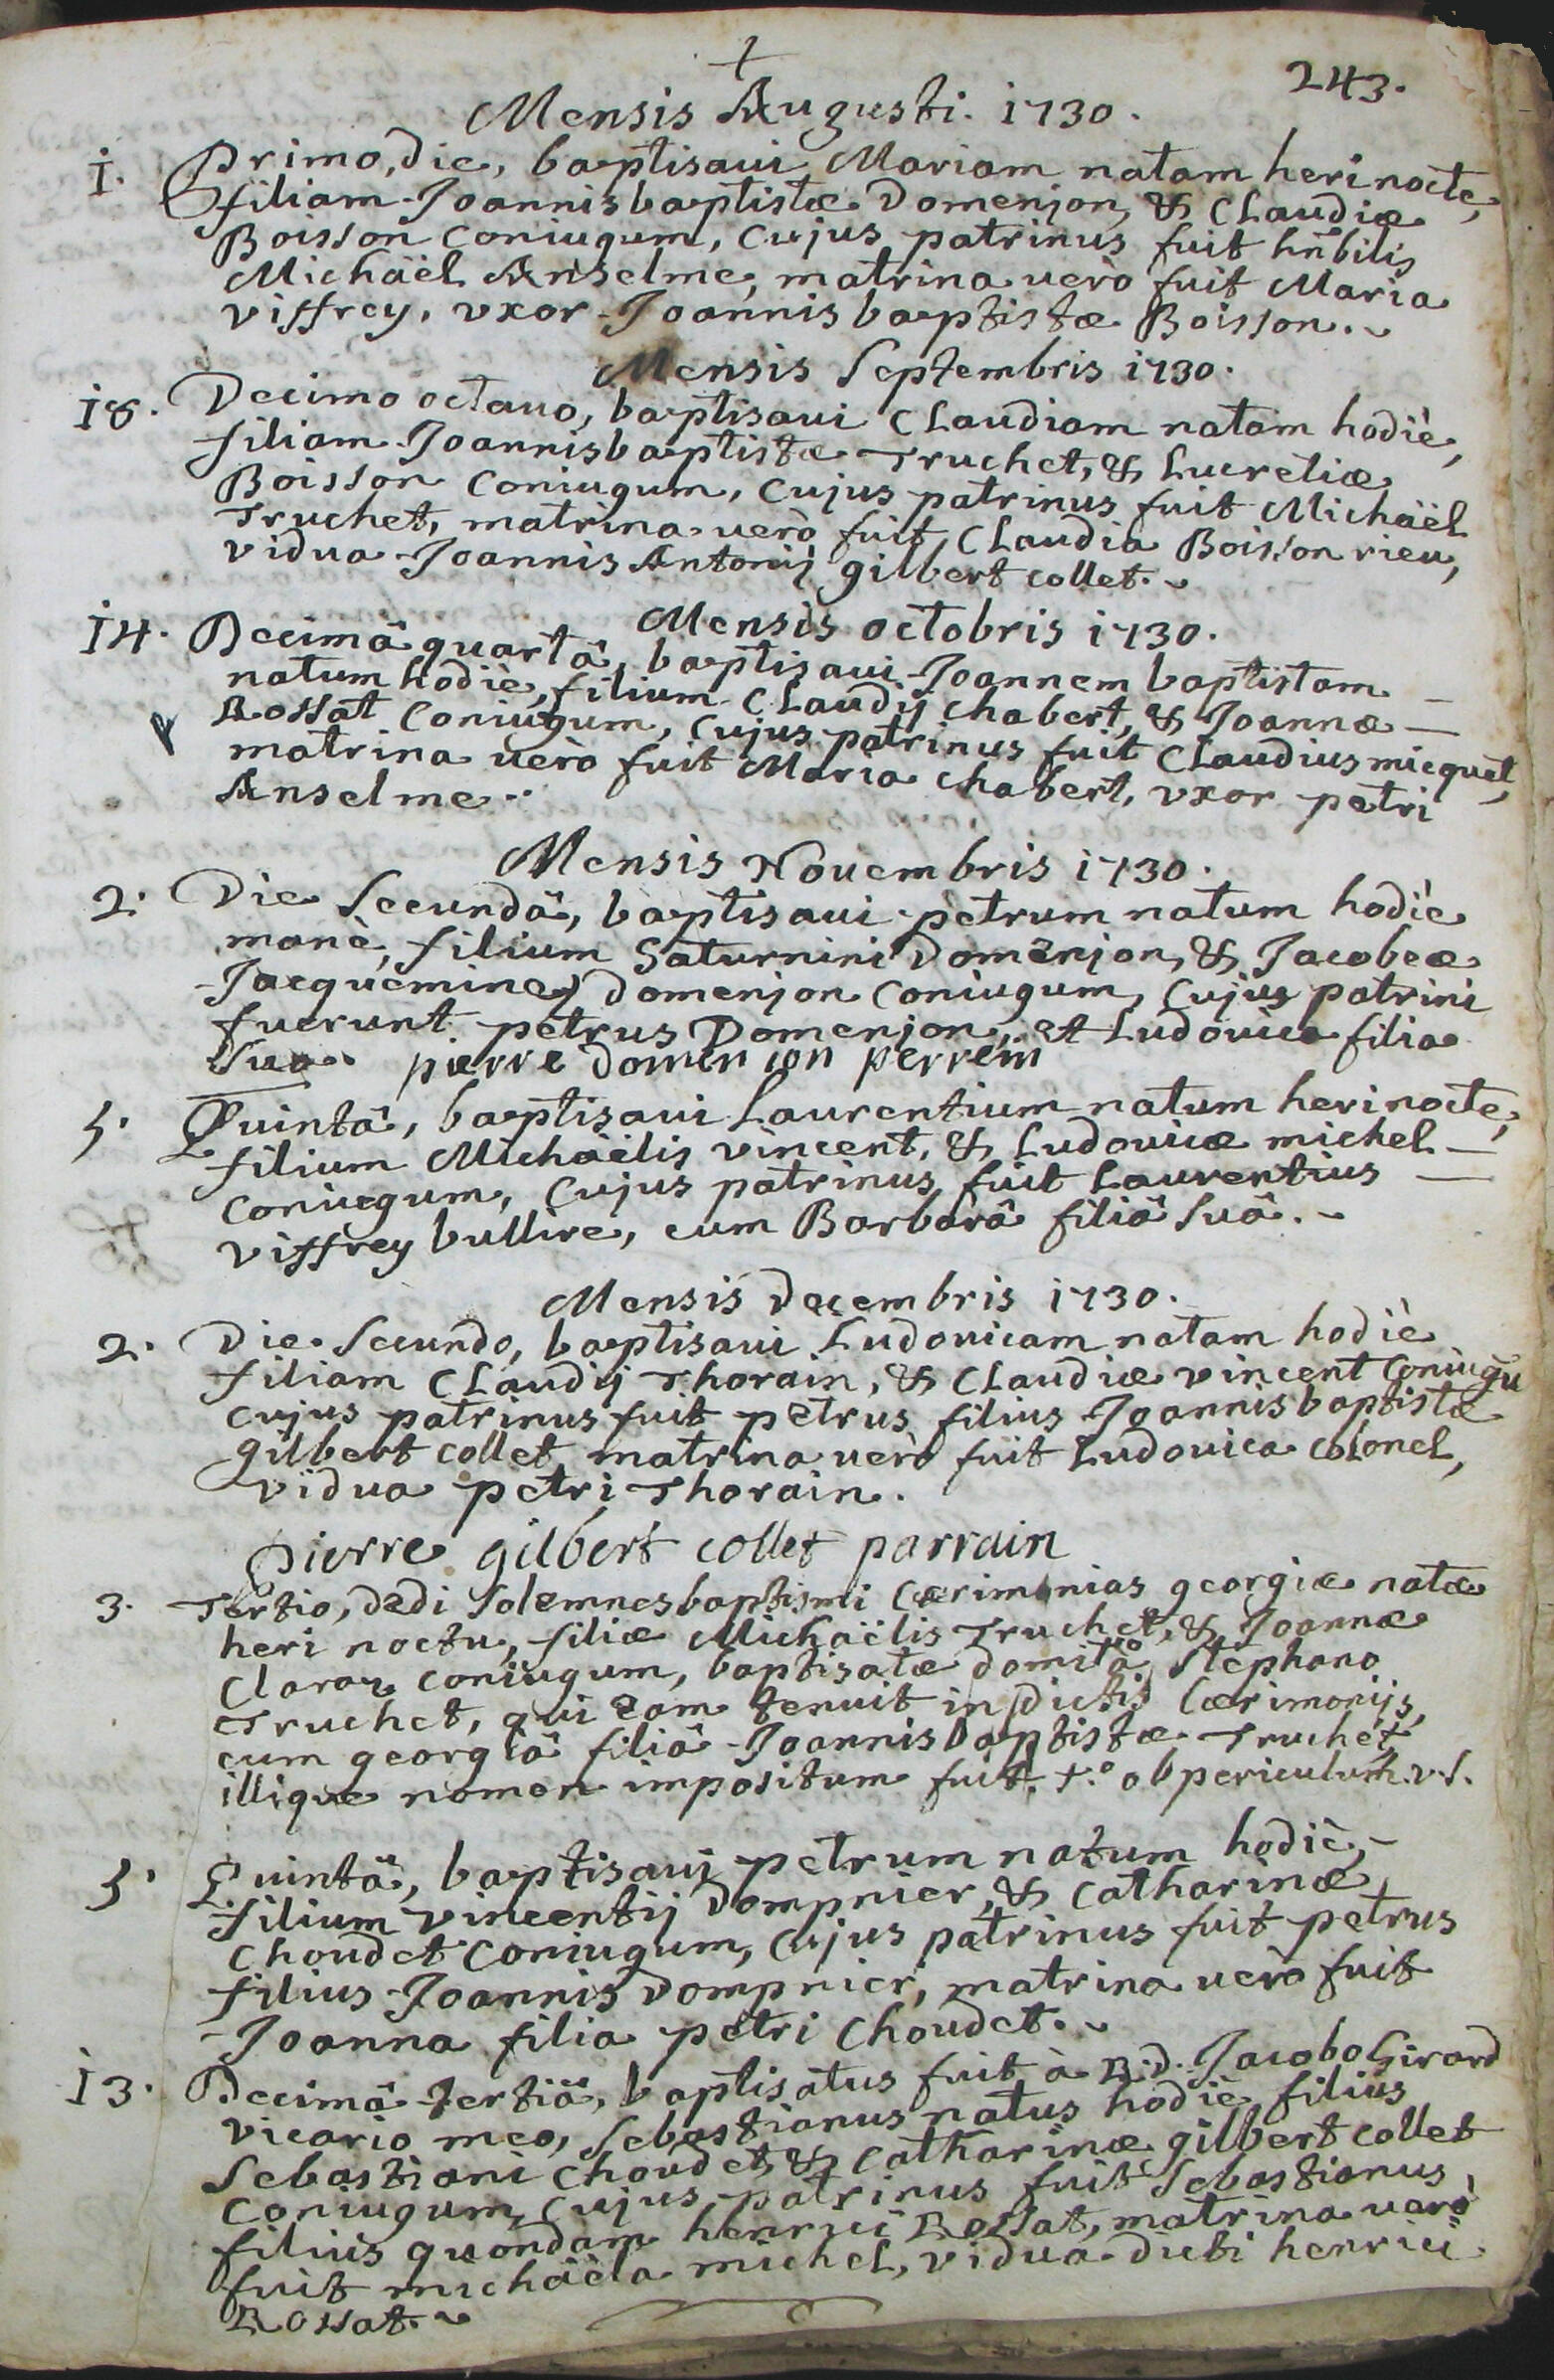 +
243.
Mensis Augusti. 1730.
1. Primo, die, baptisaui Mariam natam heri nocte,
filiam Joannisbaptistæ Domenjon, & Claudiæ
Boisson Coniugum, Cujus patrinus fuit hñbilis
Michäel Anselme, matrina uerò fuit Maria
viffrey, vxor Joannis baptistæ Boisson.
Mensis Septembris 1730.
18. Decimo octauo, baptisaui Claudiam natam hodiè,
filiam Joannisbaptistæ Truchet, & Lucretiæ
Boisson Coniugum, Cujus patrinus fuit Michäel
Truchet, matrina uerò fuit Claudia Boisson rieu,
vidua Joannis Antonij gilbert collet.
Mensis octobris 1730.
14. Decimâ quartâ, baptisaui Joannem baptistam
natum hodiè, filium Claudij chabert, & Joannæ
Rossat Coniugum, Cujus patrinus fuit Claudius micquet,
matrina uerò fuit Maria chabert, vxor petri
Anselme.
Mensis Nouembris 1730.
2. Die Secundâ, baptisaui petrum natum hodiè
manè, filium Saturnini Domenjon, & Jacobeæ
Jacquemine) Domenjon Coniugum, Cujus patrini
fuerunt petrus Domenjon, et Ludouica filia
Sua. pierre domenion perrein
5. Quintâ, baptisaui Laurentium natum heri nocte,
filium Michäelis vincent, & Ludouicæ michel
Coniugum, Cujus patrinus fuit Laurentius
viffrey bullire, cum Barbarâ filiâ Suâ.
Mensis Decembris 1730.
2. Die Secundo, baptisaui Ludouicam natam hodiè
filiam Claudij Thorain, & Claudiæ vincent Coniugũ
Cujus patrinus fuit petrus filius Joannisbaptistæ
gilbert collet, matrina uerò fuit Ludouica colonel,
vidua petri Thorain.
pierre gilbert collet parrain
3. Tertio, dedi Solemnes baptismi Cærimonias georgiæ natæ
heri noctu, filiæ Michäelis Truchet, & Joannæ
Claraz Coniugum, baptisatæ domi à Stephano
Truchet, qui eam tenuit in dictis Cærimonijs,
cum georgiâ filiâ Joannisbaptistæ Truchet
illique nomen impositum fuit. ob periculum. v.s.
5. Quintâ, baptisaui petrum natum hodiè,
filium vincentij Dompnier, & Catharinæ
Choudet Coniugum, Cujus patrinus fuit petrus
filius Joannis Dompnier, matrina uerò fuit
Joanna filia petri Choudet.
13. Decimâ tertiâ, baptisatus fuit à R.D. Jacobo Girard
vicario meo, Sebastianus natus hodiè, filius
Sebastiani Choudet, & Catharinæ gilbert collet
Coniugum, Cujus patrinus fuit Sebastianus,
filius quondam henrici Rossat, matrina uerò
fuit michäela michel, vidua dicti henrici
Rossat.